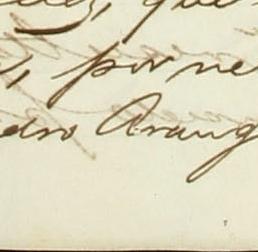 , que
, por ne
dro Arang